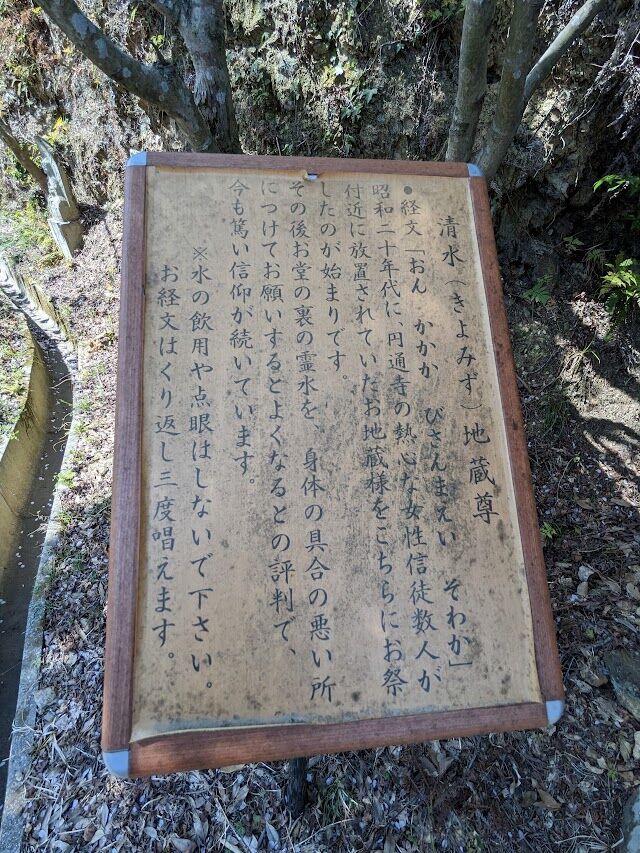 清水（きよみず）地蔵尊
●経文「おん　かかか　びさんまえい　そわか」
昭和二十年代に、円通寺の熱心な女性信徒数人が
付近に放置されていたお地蔵様をこちらにお祭
したのが始まりです。
その後お堂の裏の霊水を、身体の具合の悪い所
につけてお願いするとよくなるとの評判で、
今も篤い信仰が続いています。
※水の飲用や点眼はしないで下さい。
お経文はくり返し三度唱えます。